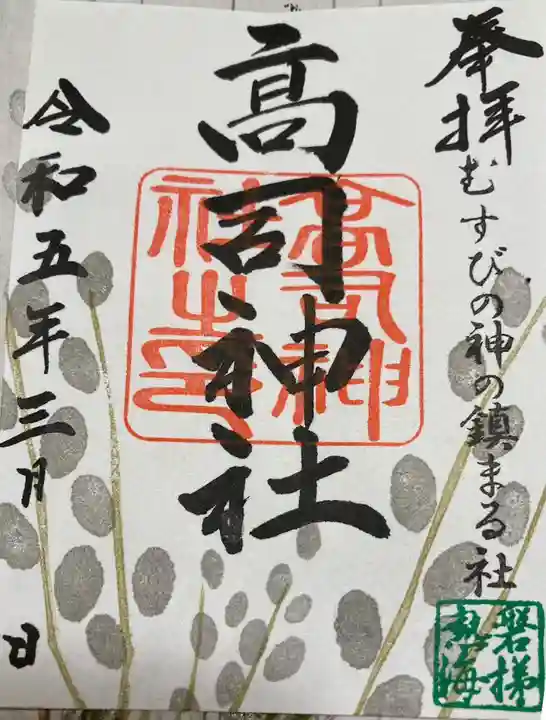 奉拝
むすびの神の鎮まる社
高司神社
高司神社之印
令和五年三月 日
磐梯
熱海